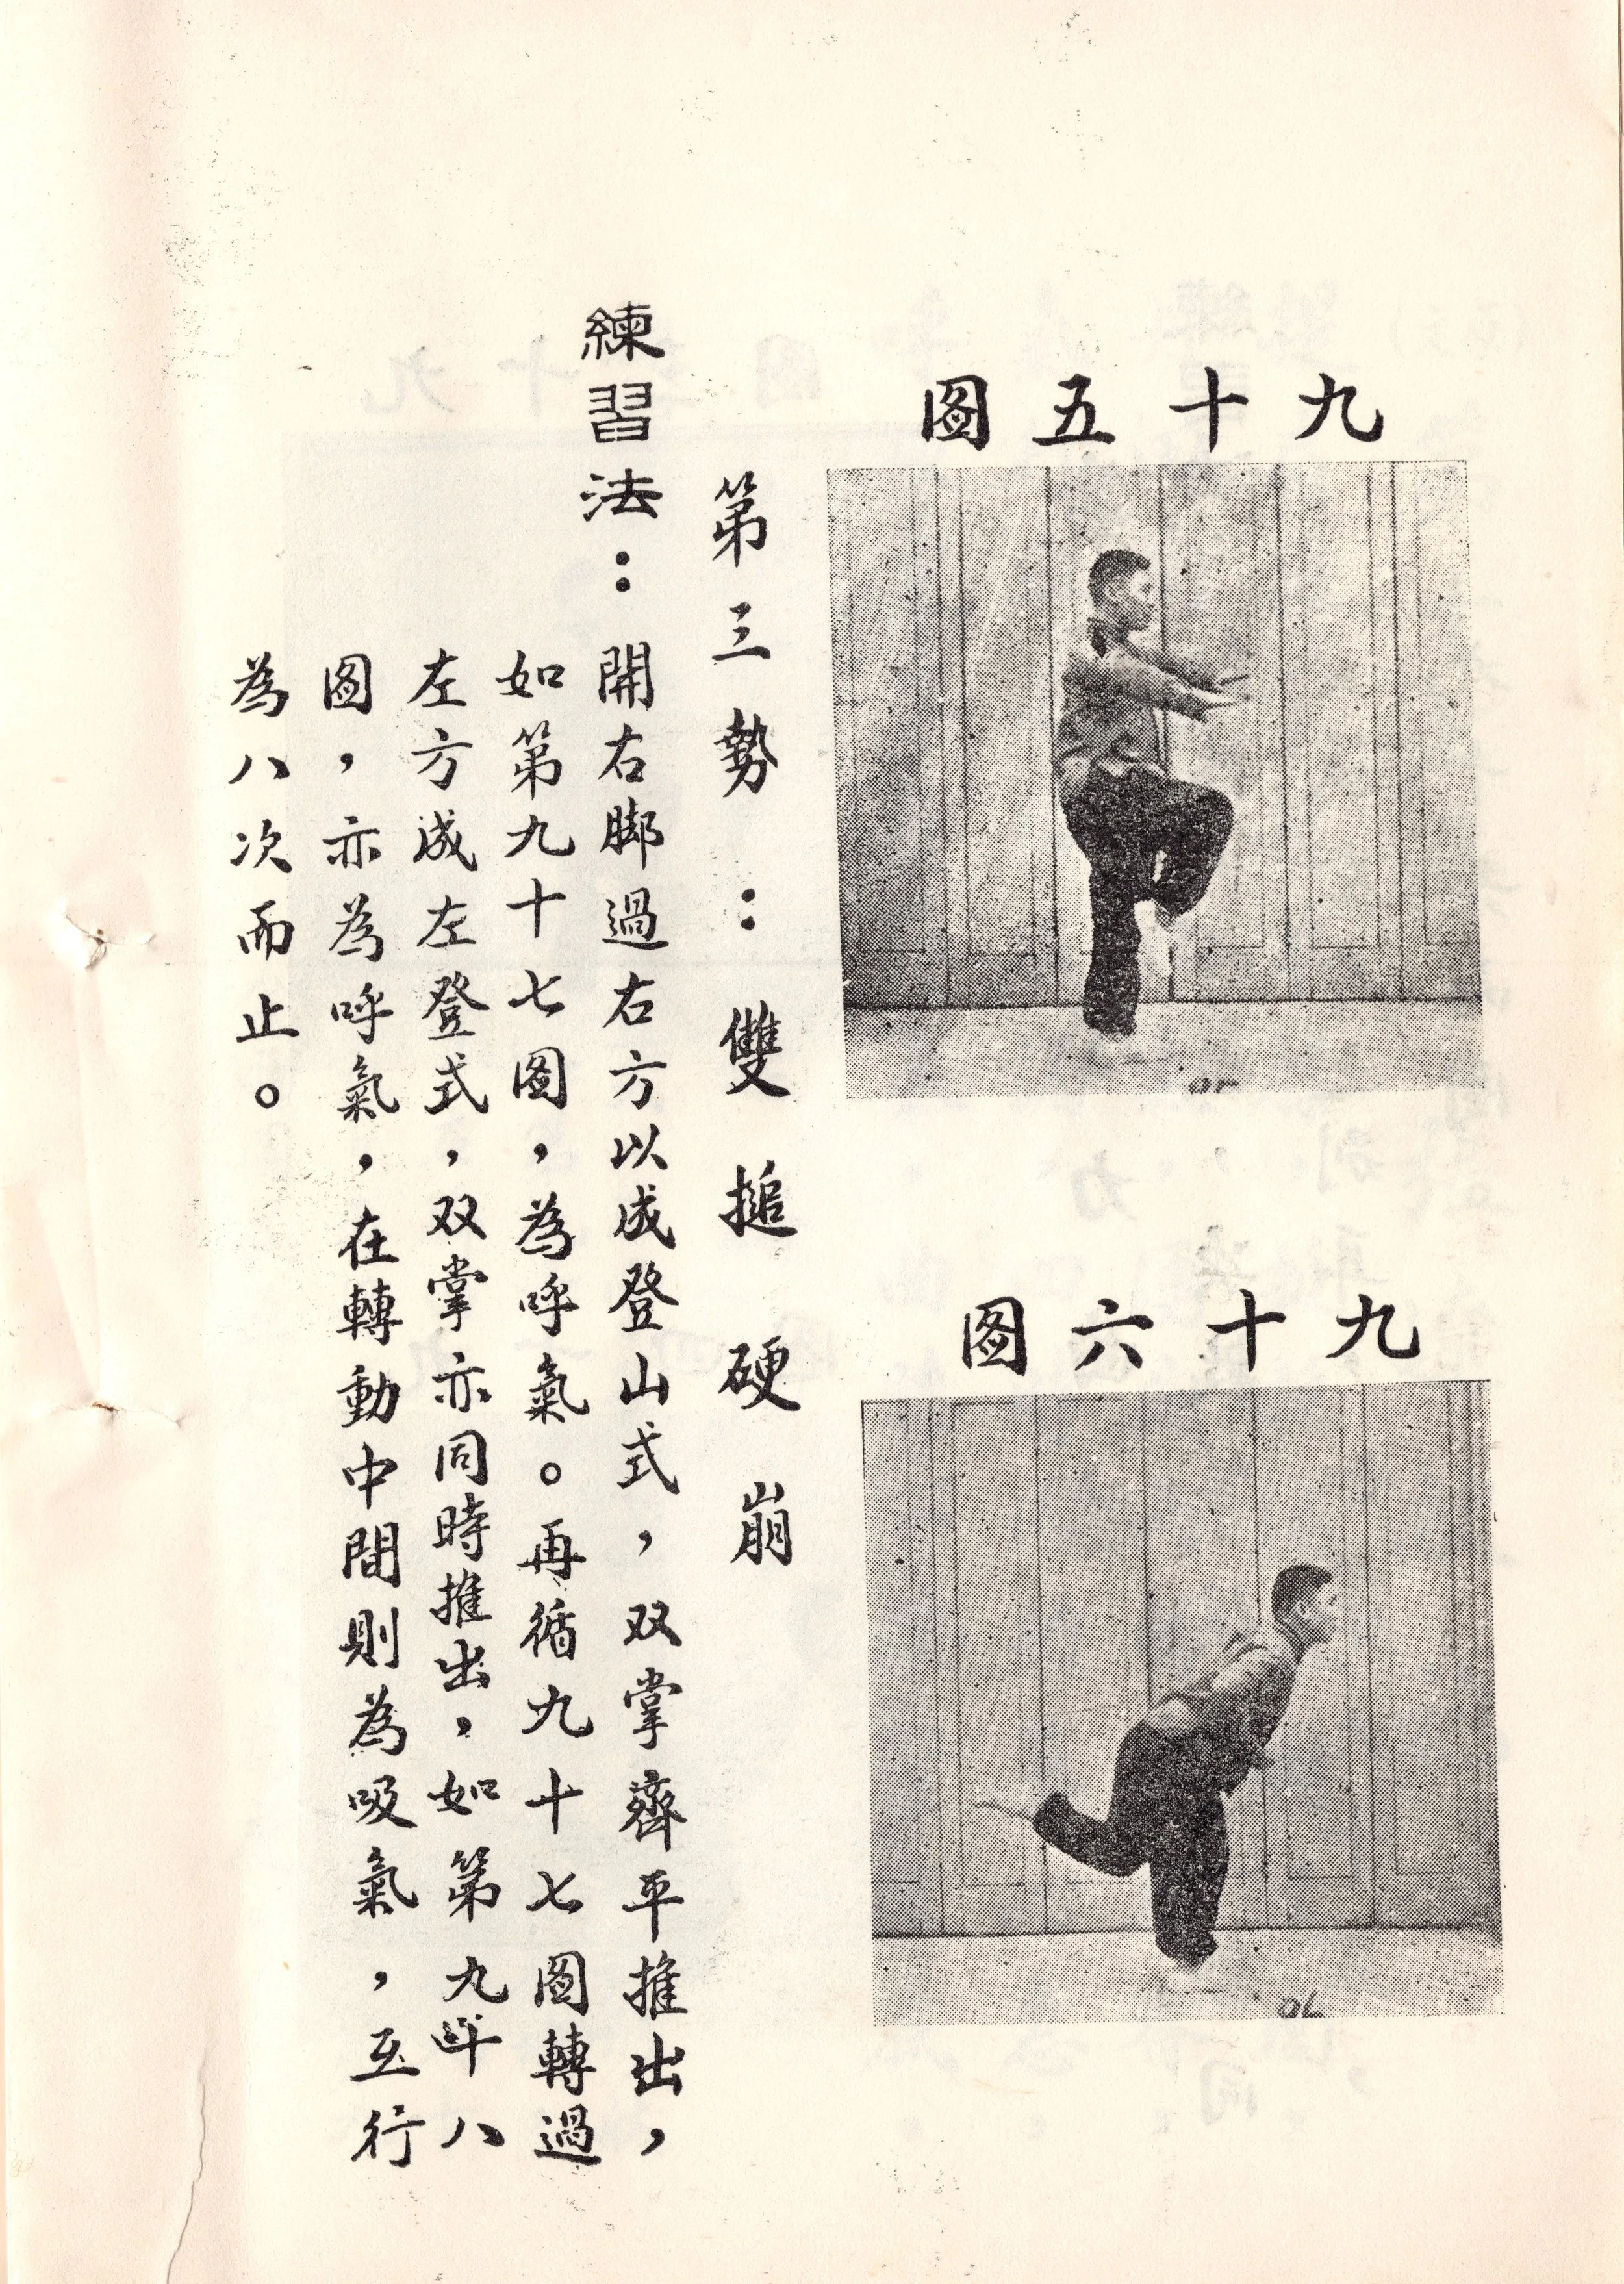 九十五图
九十六图
第三勢：雙搥硬崩
練習法：開右脚過右方以成登山式，双掌齊平推出，
如第九十七图，為呼氣。再循九十七图轉過
左方成左登式，双掌亦同時推出，如第九十八
图，亦為呼氣，在轉動中間則為吸氣，互行
為八次而止。